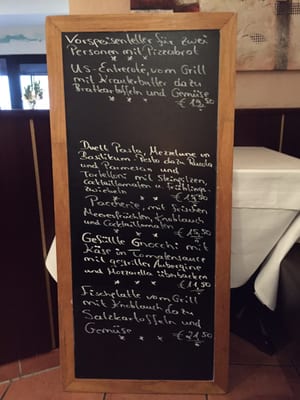 Vorspeisenteller für zwei
Personen mit Pizzabrot
* * *
US-Entrecote, vom Grill
mit Kräuterbutter dazu
Bratkartoffeln und Gemüse
* * * € 19,50
Duett Pasta, Mezzalune
Basilikum-Pesto dazu Rucola
und Parmesan und
Tortelloni mit Steinpilzen,
Cocktailtomaten u. Frühlings-
zwiebeln € 15,50
* * *
Paccherie, mit frischen
Meeresfrüchten, Knoblauch
und Cocktailtomaten
* * * € 15,50
Gefüllte Gnocchi mit
Käse in Tomatensauce
mit gegrillter Aubergine
und Mozzarella überbacken
* * * € 11,50
Fischplatte vom Grill
mit Knoblauch dazu
Salzkartoffeln und
Gemüse € 21,50
* * *